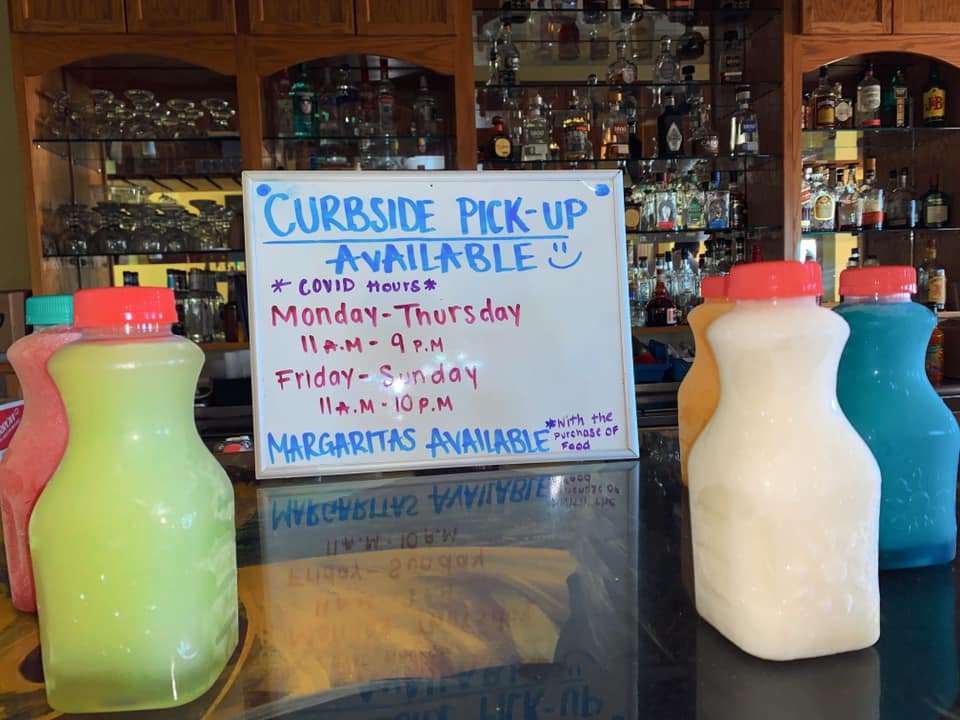 CURBSIDE PICK-UP
AVAILABLE :)
* COVID Hours *
Monday-Thursday
11 A.M - 9 P.M
Friday - Sunday
11 A.M - 10 P.M
MARGARITAS AVAILABLE
*With the
Purchase OF
Food